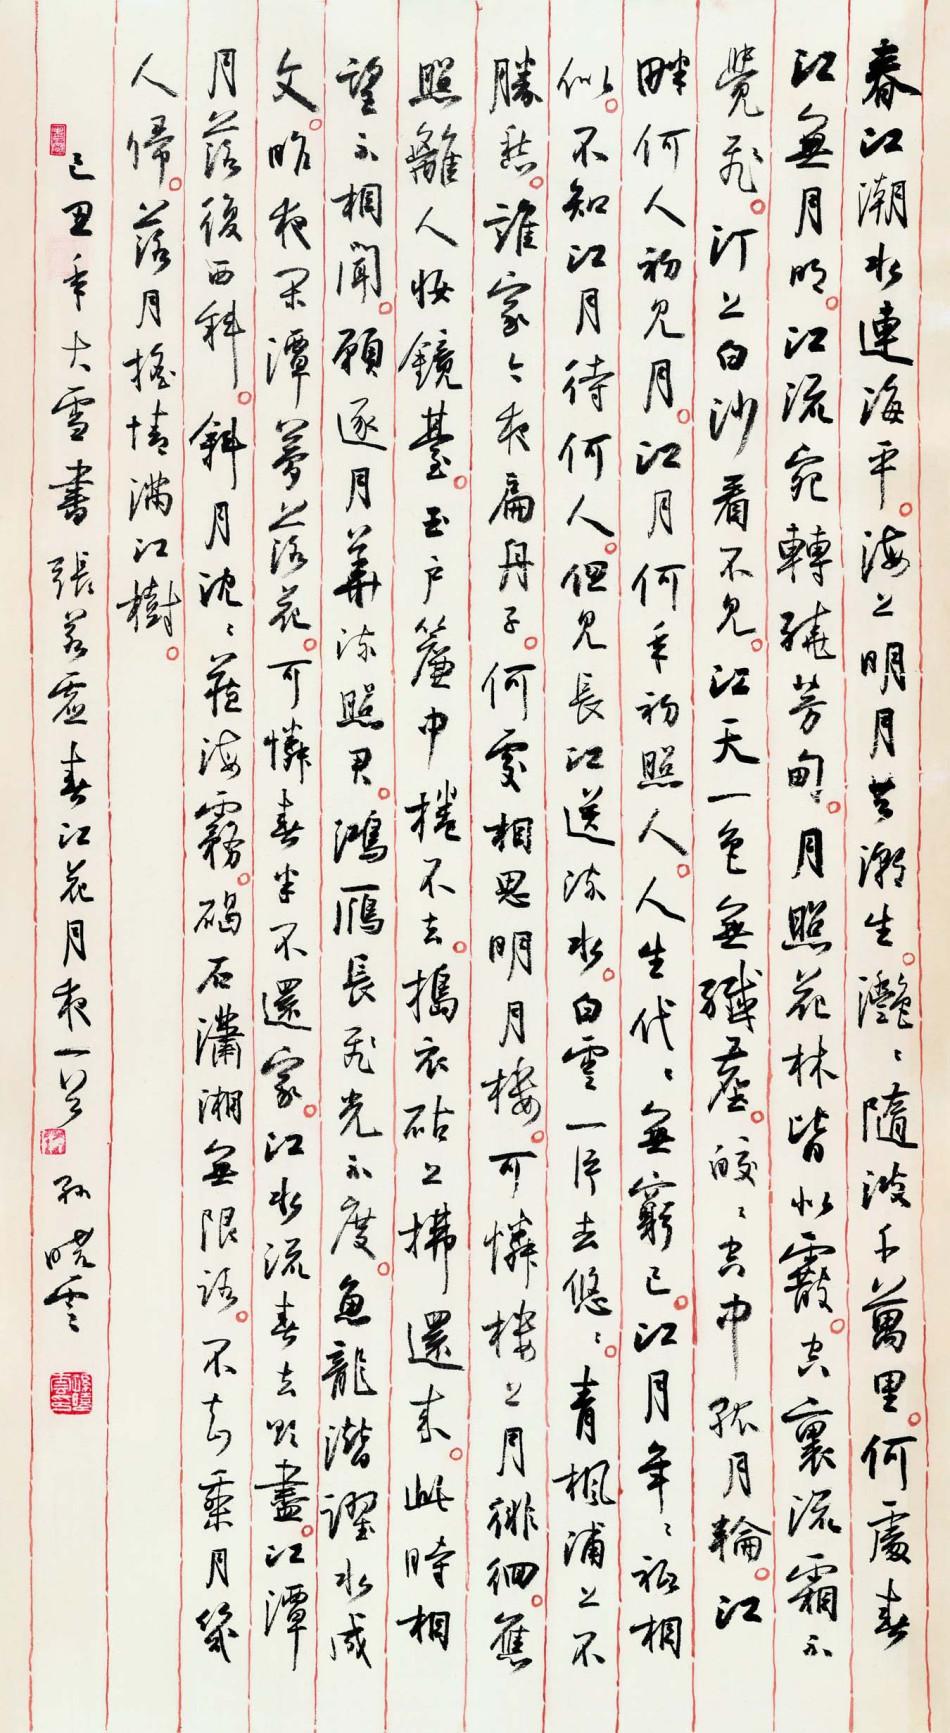 春江潮水連海平。海上明月共潮生。灩〻隨波千萬里。何處春
江無月明。江流宛轉繞芳甸。月照花林皆似霰。空裏流霜不
覺飛。汀上白沙看不見。江天一色無纖塵。皎〻空中孤月輪。江
畔何人初見月。江月何年初照人。人生代〻無窮已。江月年〻祇相
似。不知江月待何人。但見長江送流水。白雲一片去悠〻。青楓浦上不
勝愁。誰家今夜扁舟子。何處相思明月樓。可憐樓上月徘徊。應
照離人妝鏡臺。玉戶簾中捲不去。擣衣砧上拂還來。此時相
望不相聞。願逐月華流照君。鴻雁長飛光不度。魚龍潛躍水成
文。昨夜閑潭夢落花。可憐春半不還家。江水流春去欲盡。江潭
月落復西斜。斜月沈〻藏海霧。碣石瀟湘無限路。不知乘月幾
人歸。落月搖情滿江樹。
己丑年大雪書 張若虛春江花月夜一首 孫曉雲